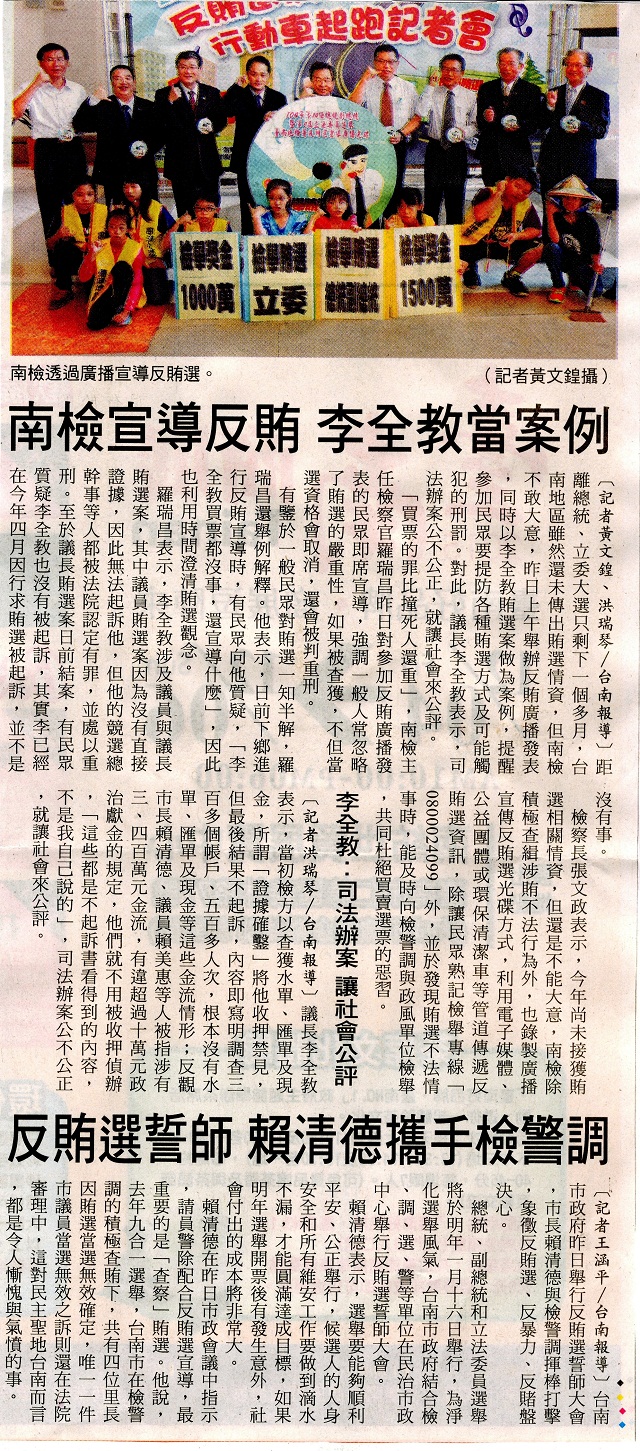 反賄選
行動車起跑記者會
檢舉獎金
1000萬
檢舉賄選
立委
檢舉賄選
總統副總統
檢舉獎金
1500萬
南檢透過廣播宣導反賄選。
（記者黃文鍠攝）
南檢宣導反賄 李全教當案例
〔記者黃文鍠、洪瑞琴／台南報導〕距
離總統、立委大選只剩下一個多月，台
南地區雖然還未傳出賄選情資，但南檢
不敢大意，昨日上午舉辦反賄廣播發表
，同時以李全教賄選案做為案例，提醒
參加民眾要提防各種賄選方式及可能觸
犯的刑罰。對此，議長李全教表示，司
法辦案公不公正，就讓社會來公評。
「買票的罪比撞死人還重」，南檢主
任檢察官羅瑞昌昨日對參加反賄廣播發
表的民眾即席宣導，強調一般人常忽略
了賄選的嚴重性，如果被查獲，不但當
選資格會取消，還會被判重刑。
有鑒於一般民眾對賄選一知半解，羅
瑞昌還舉例解釋。他表示，日前下鄉進
行反賄宣導時，有民眾向他質疑，「李
全教買票都沒事，還宣導什麼」，因此
也利用時間澄清賄選觀念。
羅瑞昌表示，李全教涉及議員與議長
賄選案，其中議員賄選案因為沒有直接
證據，因此無法起訴他，但他的競選總
幹事等人都被法院認定有罪，並處以重
刑。至於議長賄選案日前結案，有民眾
質疑李全教也沒有被起訴，其實李已經
在今年四月因行求賄選被起訴，並不是
沒有事。
檢察長張文政表示，今年尚未接獲賄
選相關情資，但還是不能大意，南檢除
積極查緝涉賄不法行為外，也錄製廣播
宣傳反賄選光碟方式，利用電子媒體、
公益團體或環保清潔車等管道傳遞反
賄選資訊，除讓民眾熟記檢舉專線「
0800024099」外，並於發現賄選不法情
事時，能及時向檢警調與政風單位檢舉
，共同杜絕買賣選票的惡習。
李全教：司法辦案 讓社會公評
〔記者洪瑞琴／台南報導〕議長李全教
表示，當初檢方以查獲水單、匯單及現
金，所謂「證據確鑿」將他收押禁見，
但最後結果不起訴，內容即寫明調查三
百多個帳戶、五百多人次，根本沒有水
單、匯單及現金等這些金流情形；反觀
市長賴清德、議員賴美惠等人被指涉有
三、四百萬元金流，有違超過十萬元政
治獻金的規定，他們就不用被收押偵辦
，「這些都是不起訴書看得到的內容，
不是我自己說的」，司法辦案公不公正
，就讓社會來公評。
反賄選誓師 賴清德攜手檢警調
〔記者王涵平／台南報導〕台南
市政府昨日舉行反賄選誓師大會
，市長賴清德與檢警調揮棒打擊
，象徵反賄選、反暴力、反賭盤
決心。
總統、副總統和立法委員選舉
將於明年一月十六日舉行，為淨
化選舉風氣，台南市政府結合檢
、調、選、警等單位在民治市政
中心舉行反賄選誓師大會。
賴清德表示，選舉要能夠順利
平安、公正舉行，候選人的人身
安全和所有維安工作要做到滴水
不漏，才能圓滿達成目標，如果
明年選舉開票後有發生意外，社
會付出的成本將非常大。
賴清德在昨日市政會議中指示
，請員警除配合反賄選宣導，最
重要的是「查察」賄選。他說，
去年九合一選舉，台南市在檢警
調的積極查賄下，共有四位里長
因賄選當選無效確定，唯一一件
市議員當選無效之訴則還在法院
審理中，這對民主聖地台南而言
，都是令人慚愧與氣憤的事。